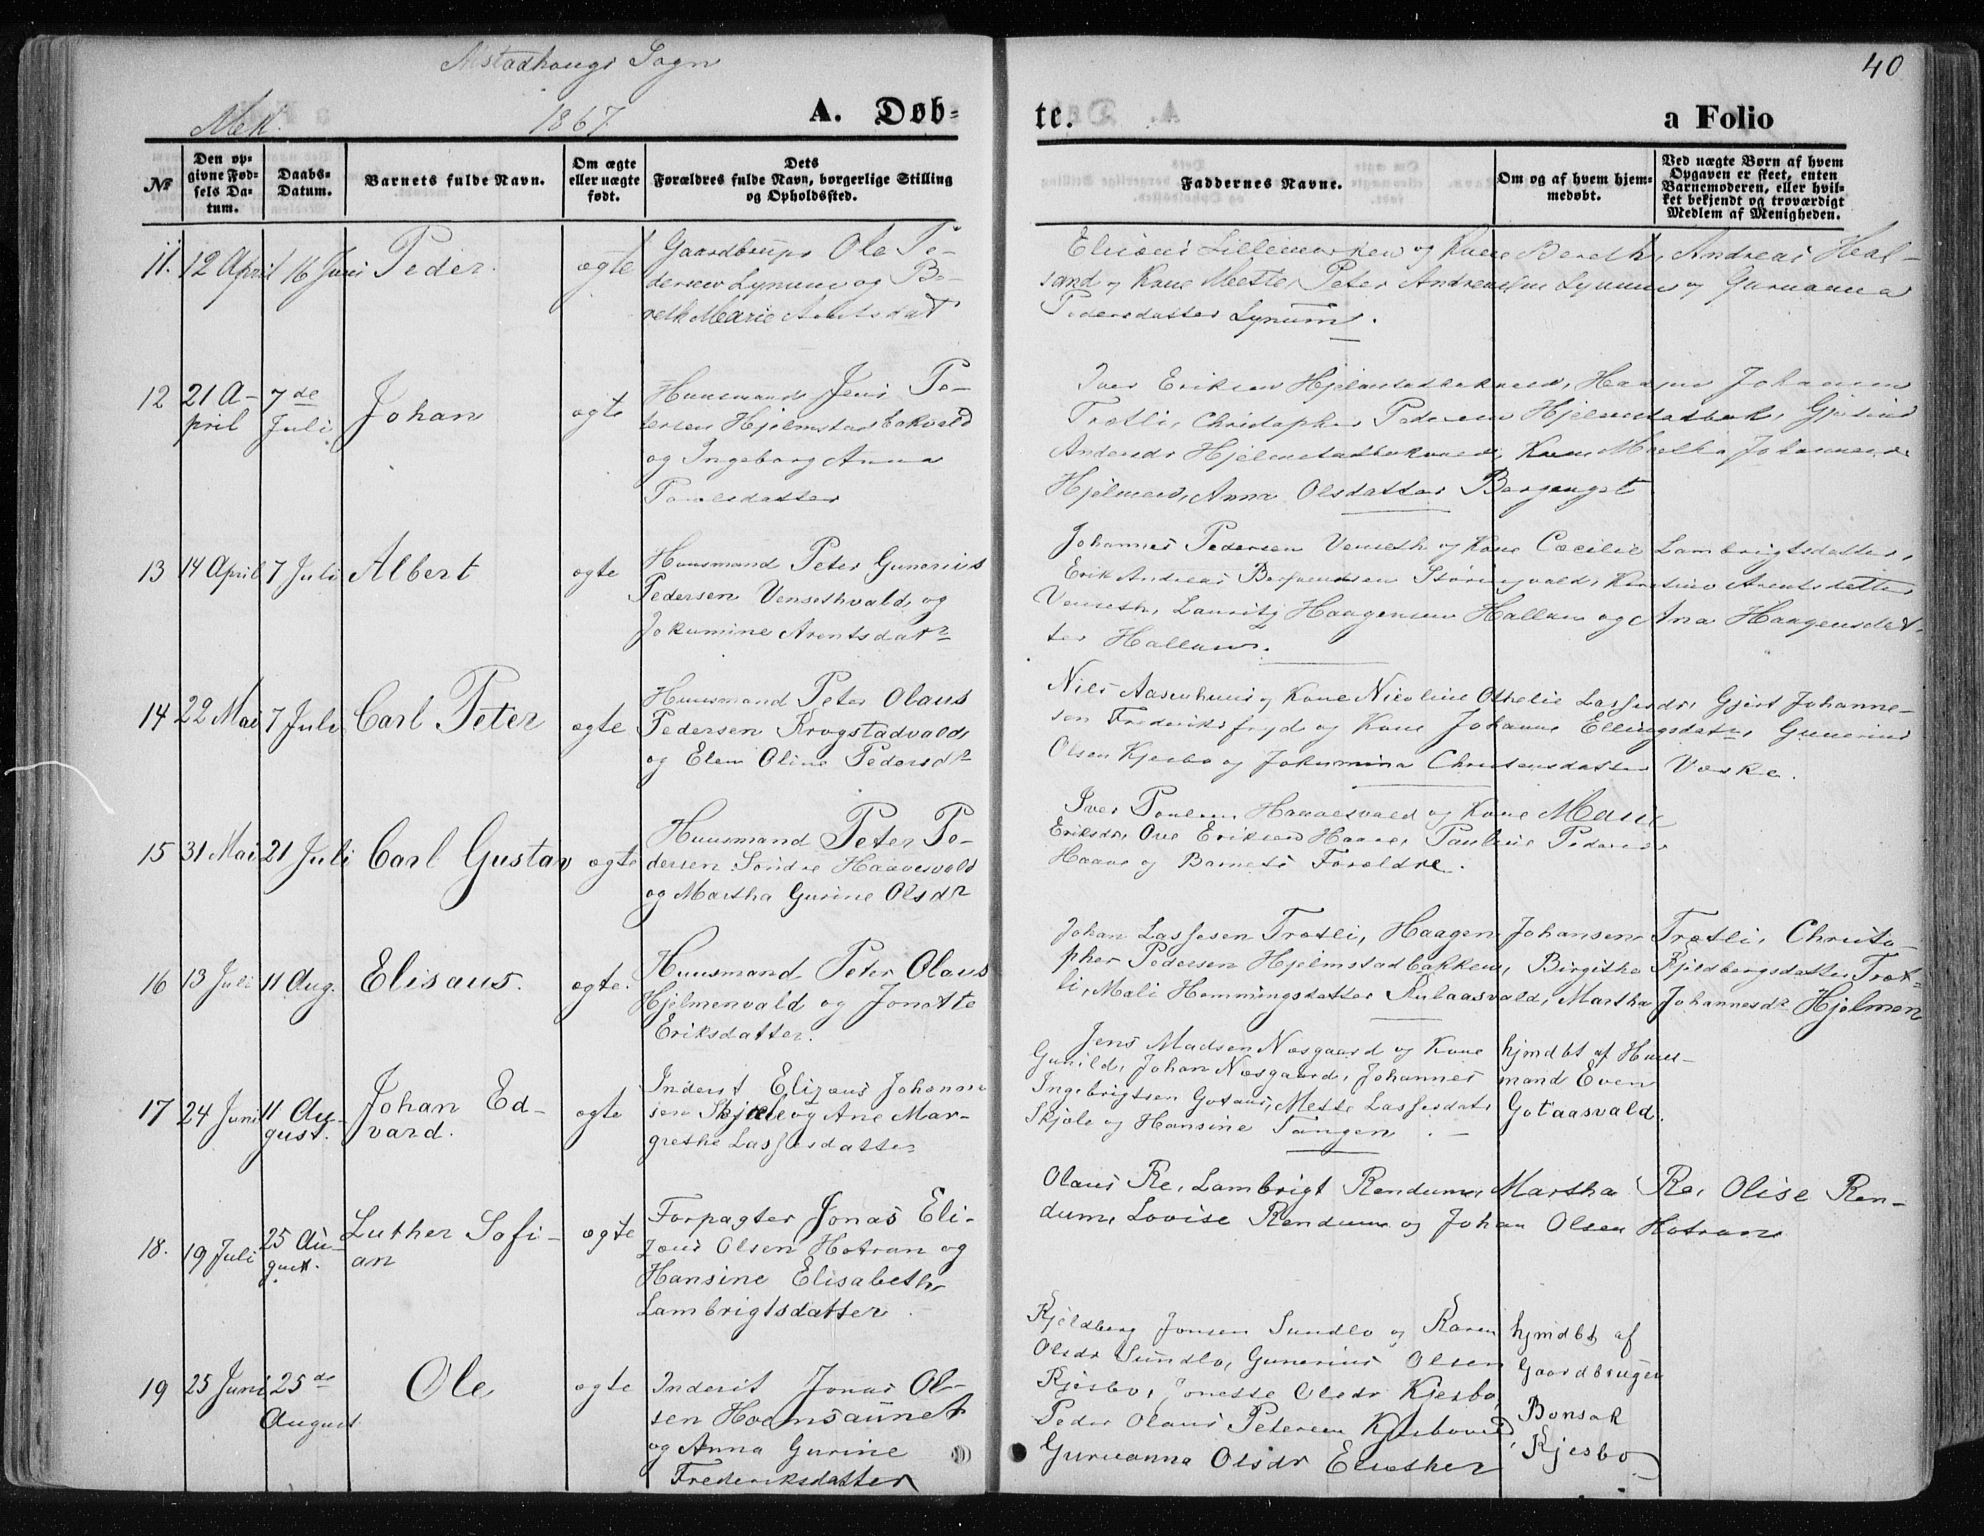 Alstadhougs Sogn
40
Mk.
1867
A. Døb-
te.
a Folio
No
Den op-
givne Fød-
sels Da-
tum.
Daabs-
Datum.
Barnets fulde Navn.
Om ægte
eller uægte
født.
Dets
Forældres fulde Navn, borgerlige Stilling
og Opholdssted.
Faddernes Navne.
Om og af hvem hjem-
medøbt.
Ved uægte Børn af hvem
Opgaven er skeet, enten
Barnemoderen, eller hvil-
ket bekjendt og troværdigt
Medlem af Menigheden.
11.
12 April
16 Juni
Peder.
ægte
Gaardbruger Ole Pe-
dersen Lynum og Be-
reth Marie Arntsdat
og Kone Bereth, Andreas
og Kone Mette, Peter Andreas Lynum og Gurianna
Pedersdatter Lynum.
12
21 A-
pril
7de
Juli
Johan
ægte
Huusmand Jens Pe-
tersen Hjelmstadbakvald
og Ingeborg Anna
Paulsdatter
Iver Eriksen Hjelmstadbakvald, Haagen Johansen
Trætli, Christopher Pedersen Hjelmstadbak,
Andersdr Hjelmstadbakvald, Kone Martha Johannesdr
Hjelmen, Anna Olsdatter Bergenget
13
14 April
7 Juli
Albert
ægte
Huusmand Peter Gunerius
Pedersen Vensethvald og
Jokumine Arentsdatr
Johannes Pedersen Venseth og Kone Cecilie Lambrigtsdatter,
Erik Andreas Arentsdatter
Venseth, Lauritz Haagensen Hallan og Ana Haagensdat-
ter Hallan.
14
22 Mai
7 Juli
Carl Peter
ægte
Huusmand Peter Olaus
Pedersen Krogstadvald
og Elen Oline Pedersdr
Nils Aasenhuus og Kone Nicoline Othelie Lassesdr, Gjert Johanne-
sen Frederiksfryd og Kone Johanne Ellingsdatr, Gunerius
Olsen Kjesbo og Jokumina Christensdatter Væske.
15
31 Mai
21 Juli
Carl Gustav
ægte
Huusmand Peter Pe-
dersen Søndre Haavesvald
og Martha Gurine Olsdr
Iver Paulsen Haavesvald og Kone Mari
Eriksdr, Ove Eriksen Haave, Pauline Pedersdr
Haave og Barnets Forældre.
16
13 Juli
11 Aug.
Elisæus.
ægte.
Huusmand Peter Olaus
Hjelmenvald og Jonette
Eriksdatter.
Johan Lassesen Trætli, Haagen Johansen Trætli, Christo-
pher Pedersen Hjelmstadbakken, Birgithe Kjeldbergsdatter Træt-
li, Mali Hemmingsdatter Rulaasvald, Martha Johannesdr Hjelmen
17
24 Juni
11 Au-
gust.
Johan Ed-
vard.
ægte
Inderst Elizæus Johanne-
sen Skjøle og Ane Mar-
grethe Lassesdatter
Jens Madsen Næsgaard og Kone
Gunild, Johan Næsgaard, Johannes
Ingebrigtsen Gotaas, Mette Lassesdat.
Skjøle og Hansine Tangen.
hjmdbt af Huus-
mand Even
Gotaasvald.
18.
19 Juli
25 Au-
gust.
Luther Sofi-
an
ægte
Forpagter Jonas Eli-
zæus Olsen Hotran og
Hansine Elisabeth
Lambrigtsdatter
Olaus Re, Lambrigt Rendum, Martha Re, Olise Ren-
dum, Lovise Rendum og Johan Olsen Hotran
19
25 Juni
25de
August
Ole
ægte
Inderst Jonas Ol-
sen Hoemsaunet
og Anna Gurine
Frederiksdatter
Kjeldberg Jonsen Sundlo og Karen
Olsdr Sundlo, Gunerius Olsen
Kjesbo, Jonette Olsdr Kjesbo,
Peder Olaus Petersen Kjesbovald,
Gurianna Olsdr
hjmdbt af
Gaardbruger
Bonsak
Kjesbo